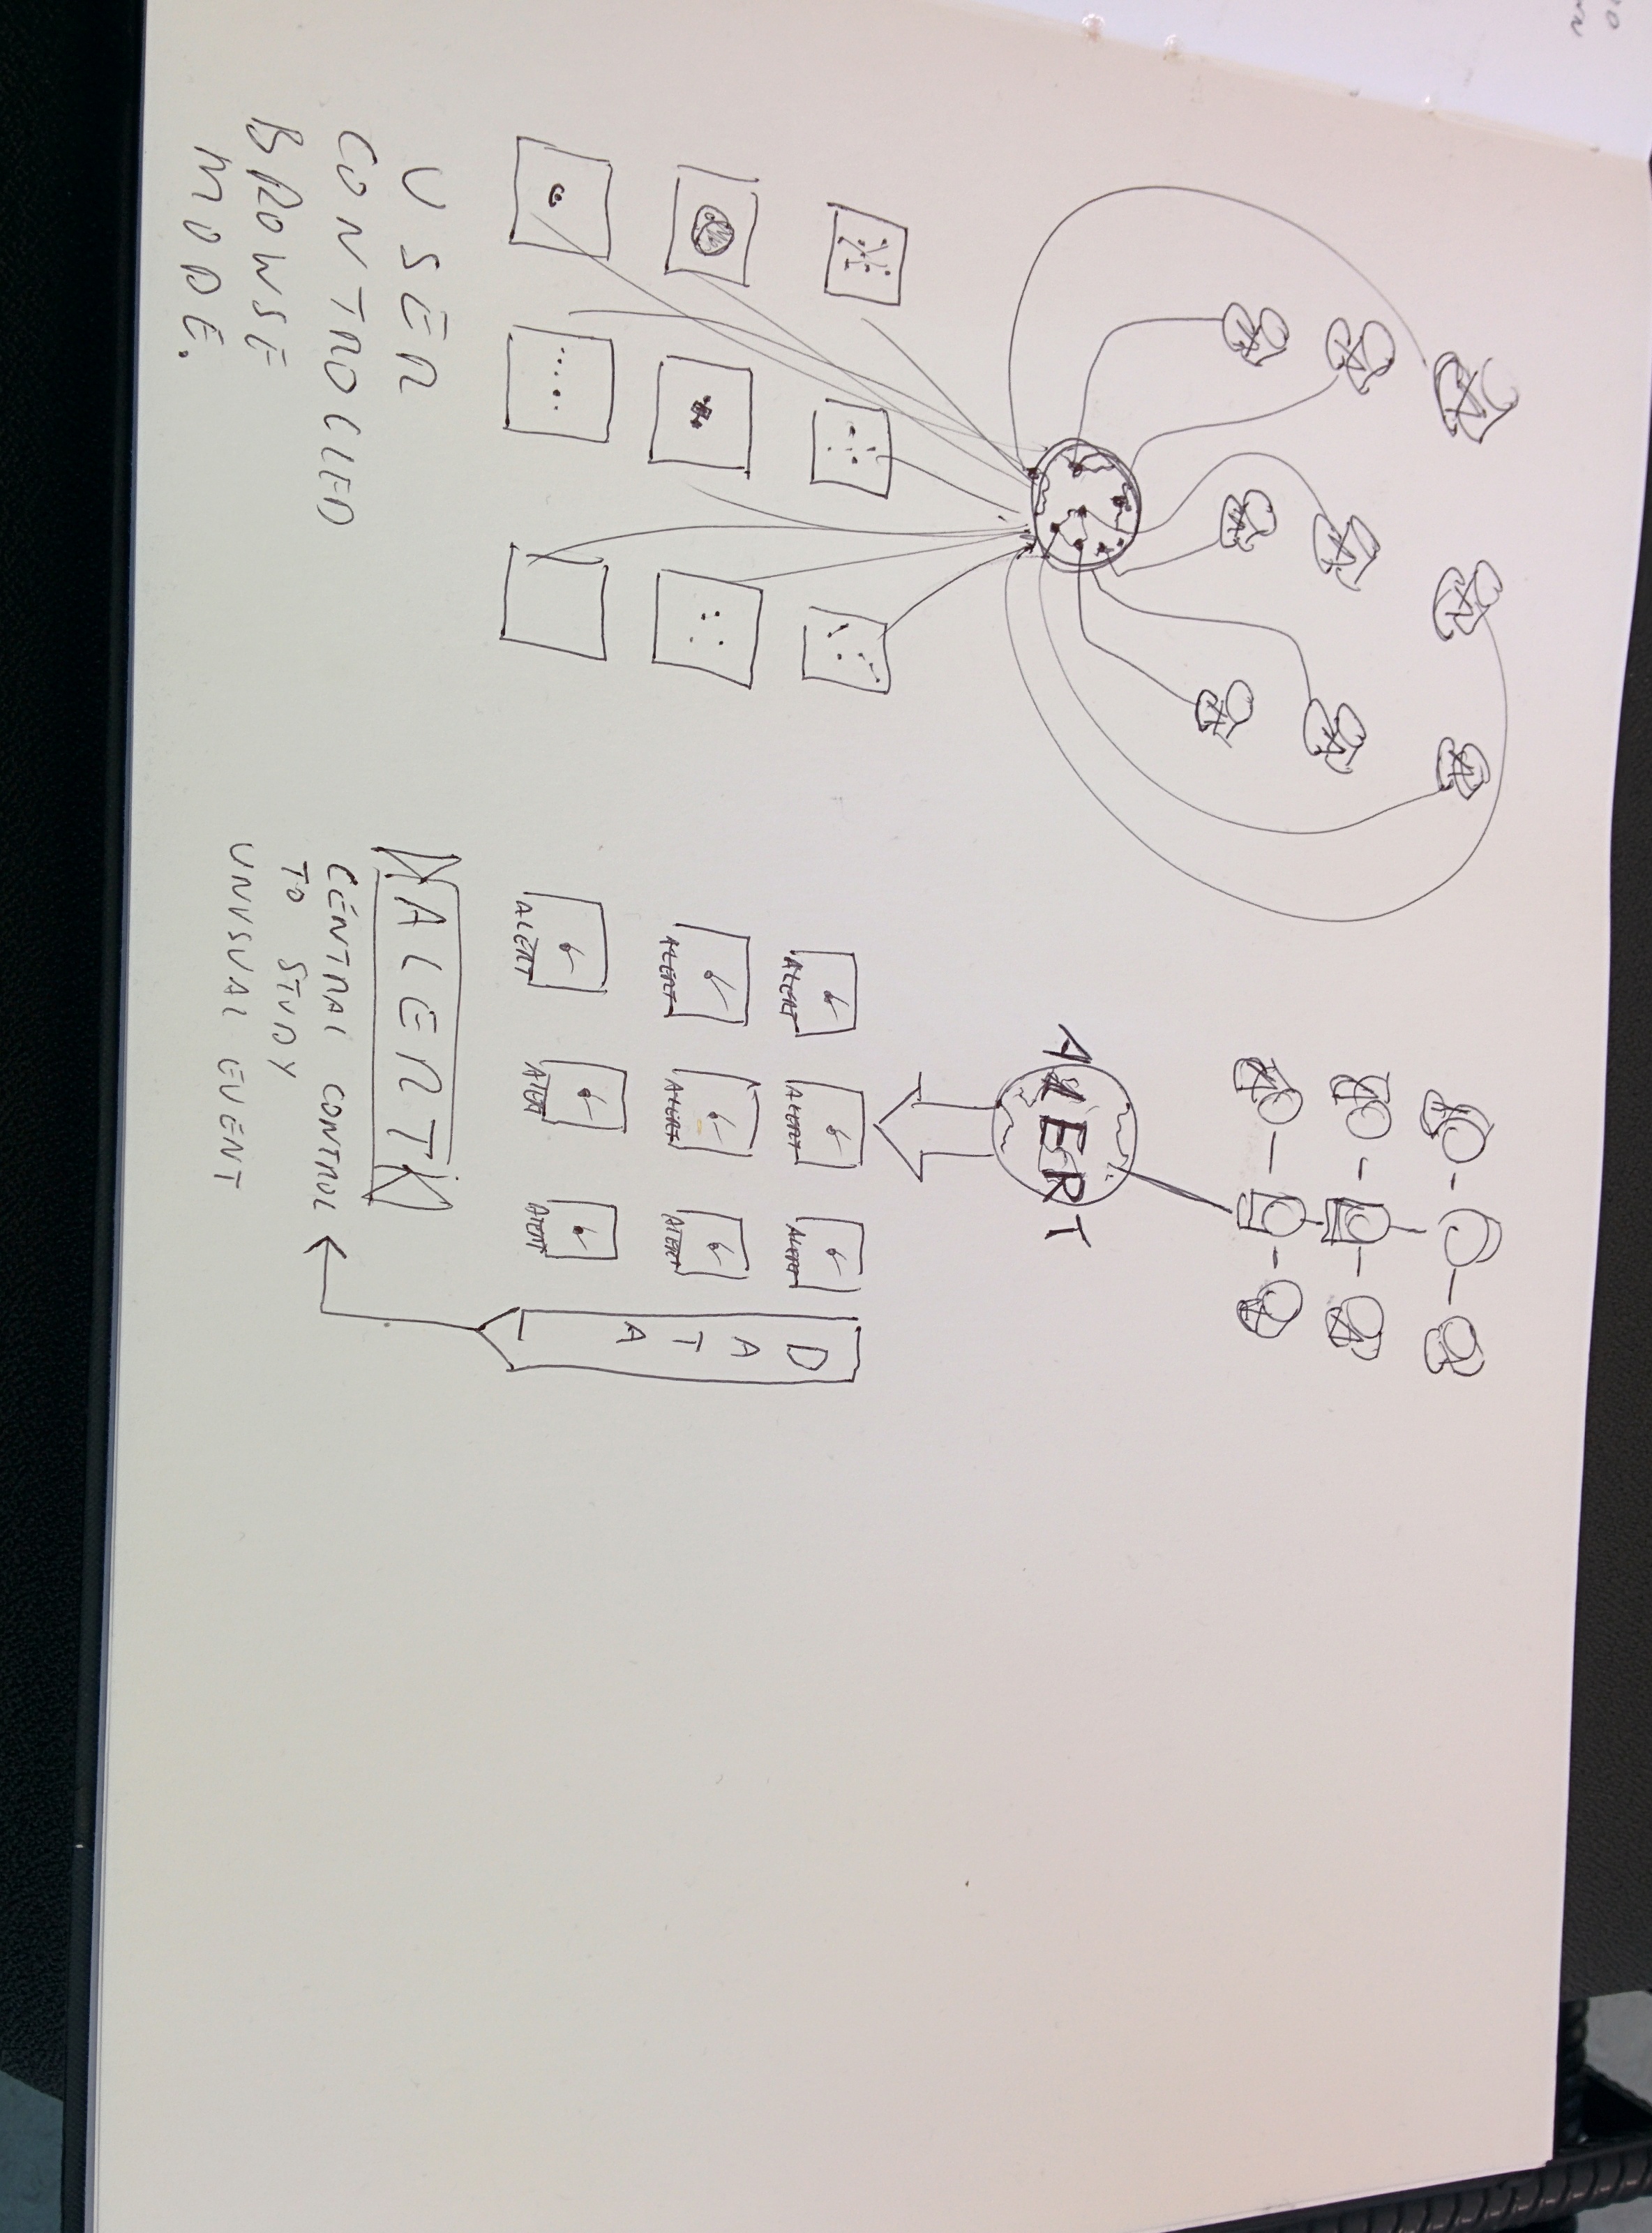 USER
CONTROLLED
BROWSE
MODE.
ALERT
ALERT
ALERT
ALERT
ALERT
ALERT
ALERT
ALERT
DATA
ALERT
CENTRAL CONTROL
TO STUDY
UNUSUAL EVENT